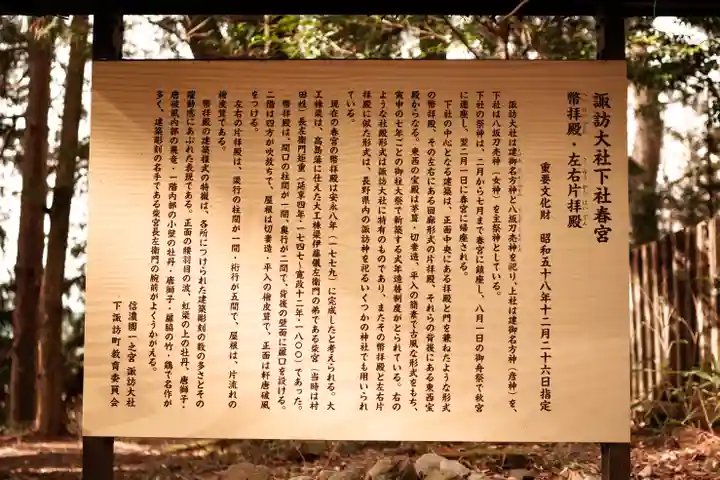 諏訪大社下社春宮
幣拝殿・左右片拝殿
重要文化財 昭和五十八年十二月二十六日指定
諏訪大社は建御名方神と八坂刀売神を祀り、上社は建御名方神（彦神）を、
下社は八坂刀売神（女神）を主祭神としている。
下社の祭神は、二月から七月まで春宮に鎮座し、八月一日の御舟祭で秋宮
に遷座し、翌二月一日に春宮に帰座される。
下社の中心となる建築は、正面中央にある拝殿と門を兼ねたような形式
の幣拝殿、その左右にある回廊形式の片拝殿、それらの背後にある東西宝
殿からなる。東西の宝殿は茅葺・切妻造、平入の簡素で古風な形式をもち、
寅申の七年ごとの御柱大祭で新築する式年造替制度がとられている。右の
ような社殿形式は諏訪大社に特有のものであり、またその幣拝殿と左右片
拝殿に似た形式は、長野県内の諏訪神を祀るいくつかの神社でも用いられ
ている。
現在の春宮の幣拝殿は安永八年（一七七九）に完成したと考えられる。大
工棟梁は、高島藩に仕えた大工棟梁伊藤儀左衛門の弟である柴宮（当時は村
田姓）長左衛門矩重（延享四年・一七四七～寛政十二年・一八〇〇）であった。
幣拝殿は、間口の柱間が一間、奥行が二間で、背後の壁面に扉口を設ける。
二階は四方が吹放ちで、屋根は切妻造・平入の檜皮葺で、正面は軒唐破風
をつける。
左右の片拝殿は、梁行の柱間が一間・桁行が五間で、屋根は、片流れの
檜皮葺である。
幣拝殿の建築様式の特徴は、各所につけられた建築彫刻の数の多さとその
躍動感にあふれた表現である。正面の腰羽目の波、虹梁の上の牡丹、唐獅子・
唐破風内部の飛竜・一階内部の小壁の牡丹・唐獅子・扉脇の竹・鶏で名作が
多く、建築彫刻の名手である柴宮長左衛門の腕前がよくうかがえる。
信濃國一之宮 諏訪大社
下諏訪町教育委員会